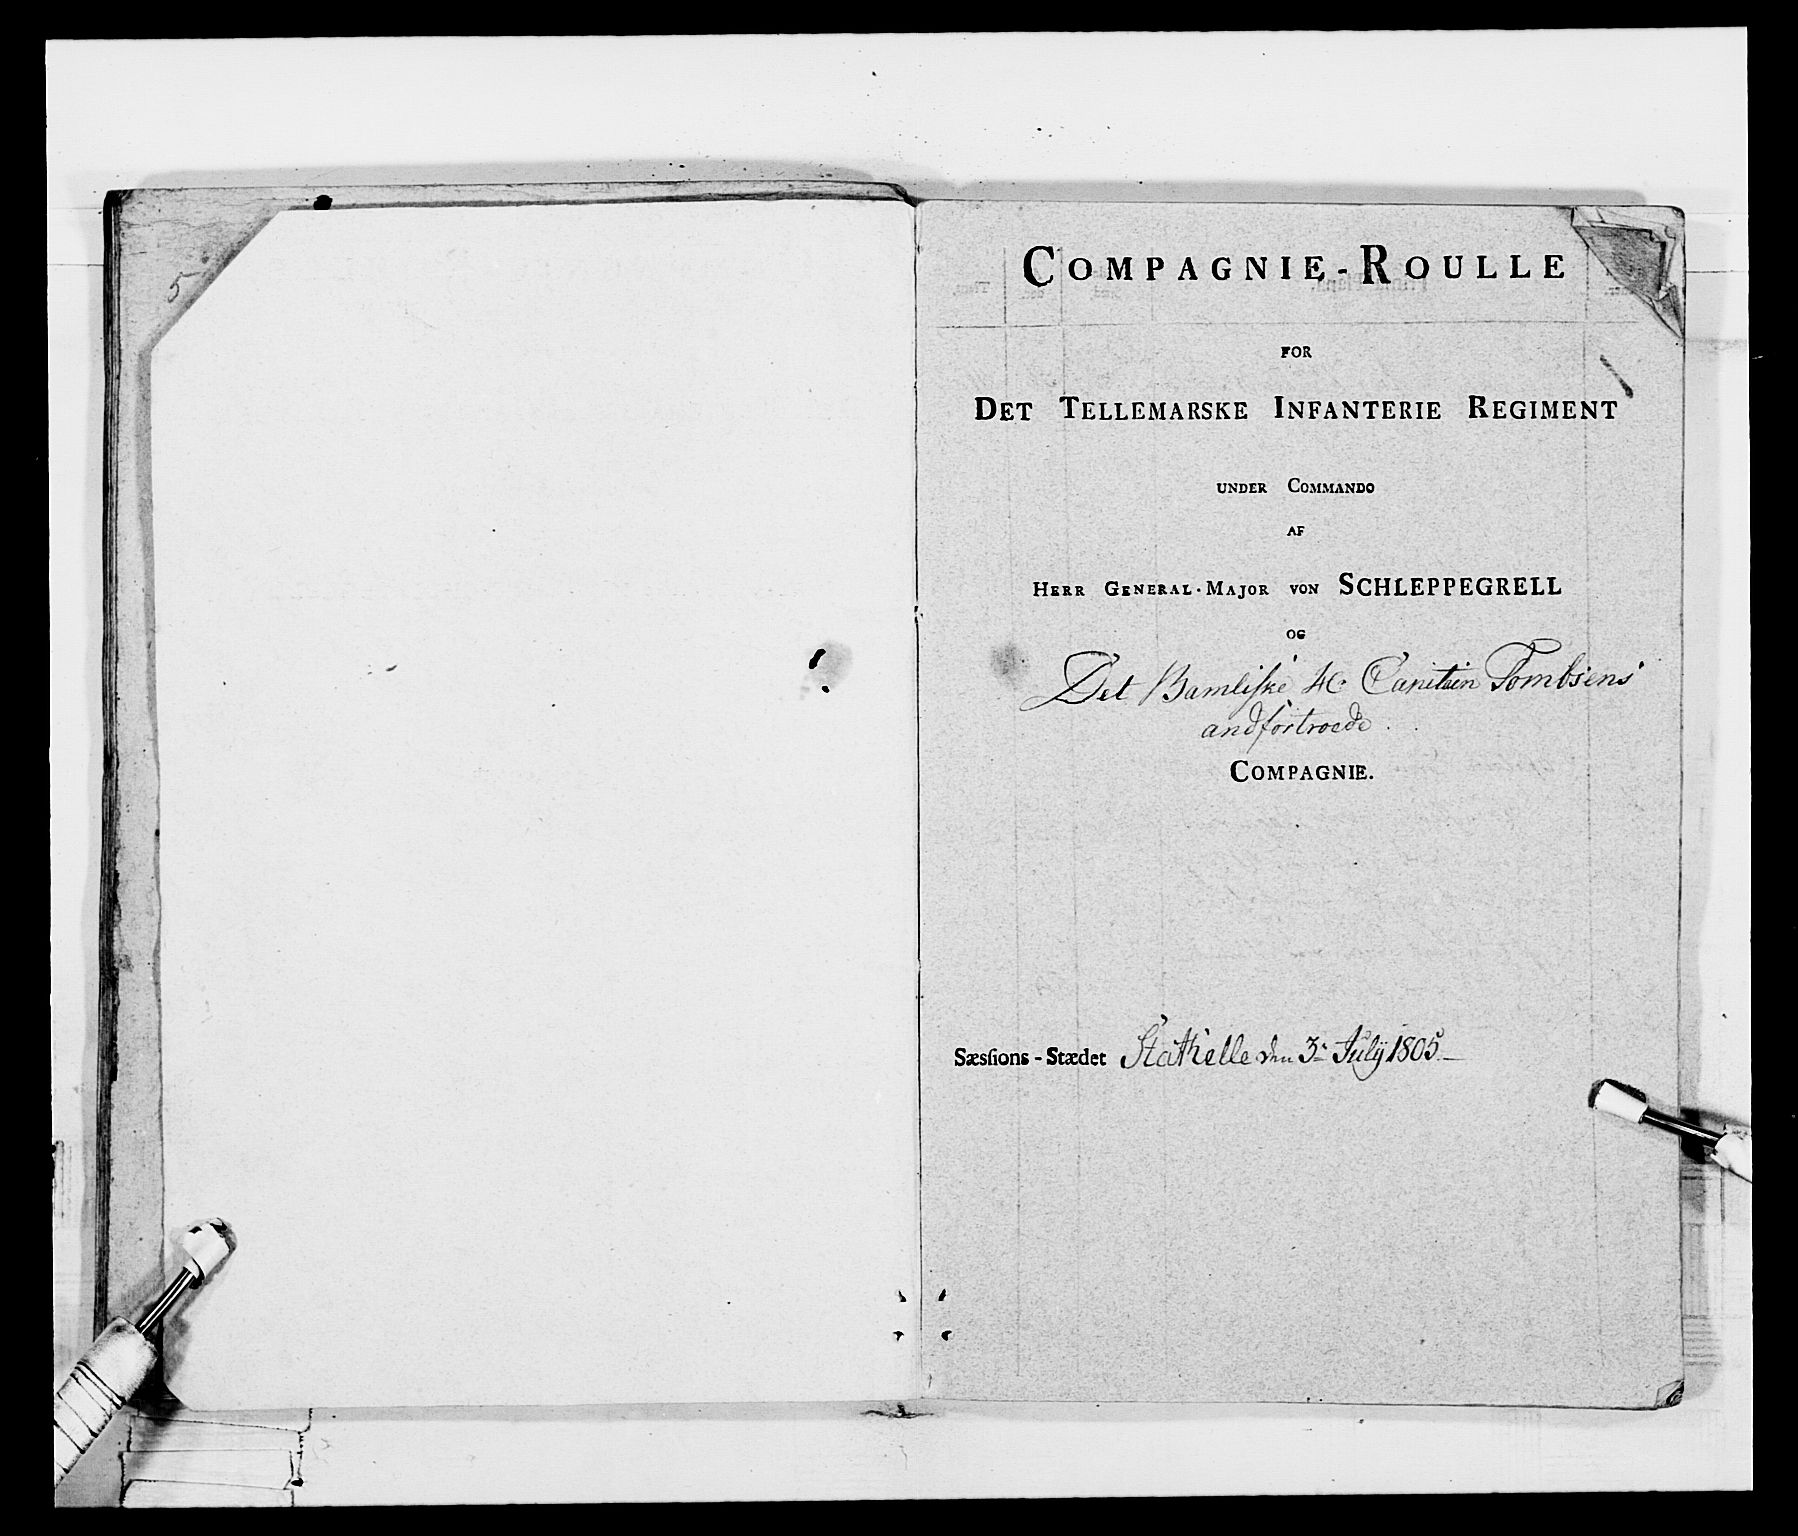 5
COMPAGNIE-ROULLE
FOR
DET TELLEMARSKE INFANTERIE REGIMENT
UNDER COMMANDO
AF
HERR GENERAL-MAJOR VON SCHLEPPEGRELL
OG
Det Bamleſke Capitain Tombsens
andfortroede
COMPAGNIE.
Sæsſions - Stædet Stathelle den 3. July 1805